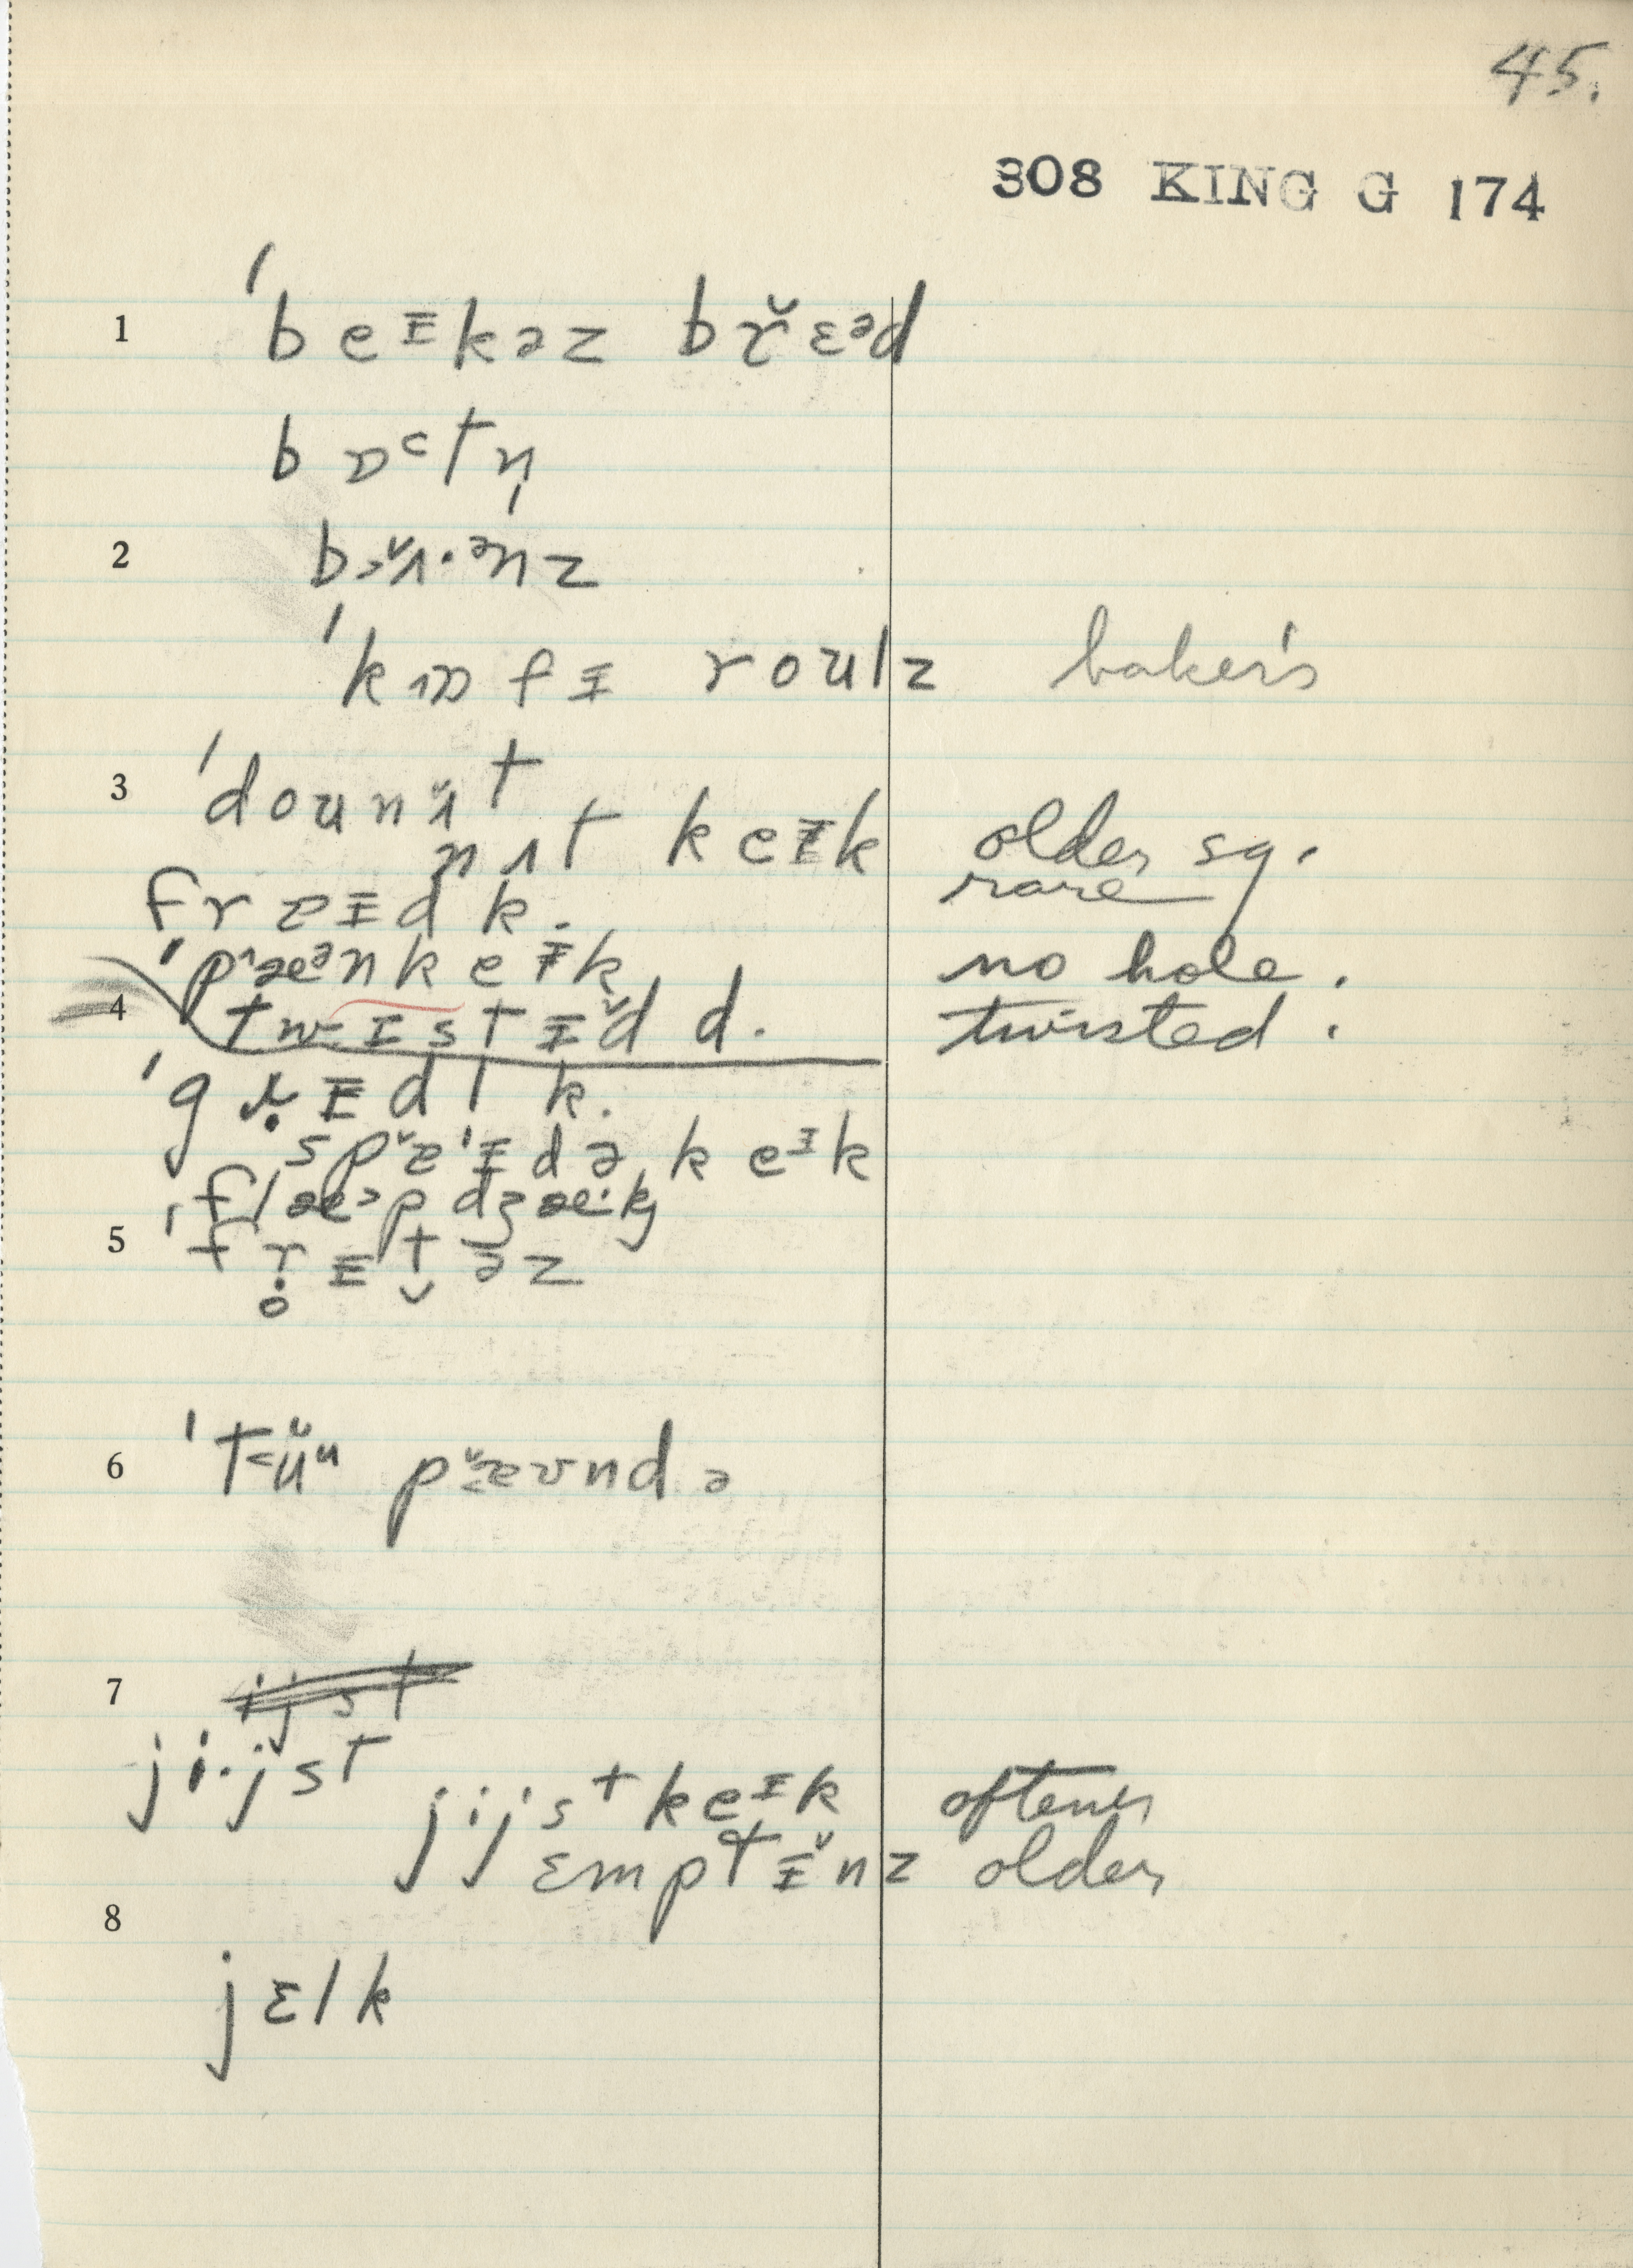 45.
308 KING G 174
1 ˈbeɪkəz br̆ɛᵊd
bɒᶜtn̩
2 b˃ʌ̆·ᵊnz
ˈkɒfɪ roulz baker's
3 ˈdounʌ̆t
nʌt keɪk older sg.
fraɪd k. rare
ˈpæᵊnkeɪk no hole.
4 twɪstɪ̆d d. twisted.
ˈgrɪdl k.
spaɪdə keɪk
ˈflæ˃pdʒæ·k
5 ˈfrɪt̬əz
6 ˈt˂ŭᵘ pæʊndə
7 ijst
ji·jst
jijst keɪk oftener
ɛmptɪ̆nz older
8
jɛlk